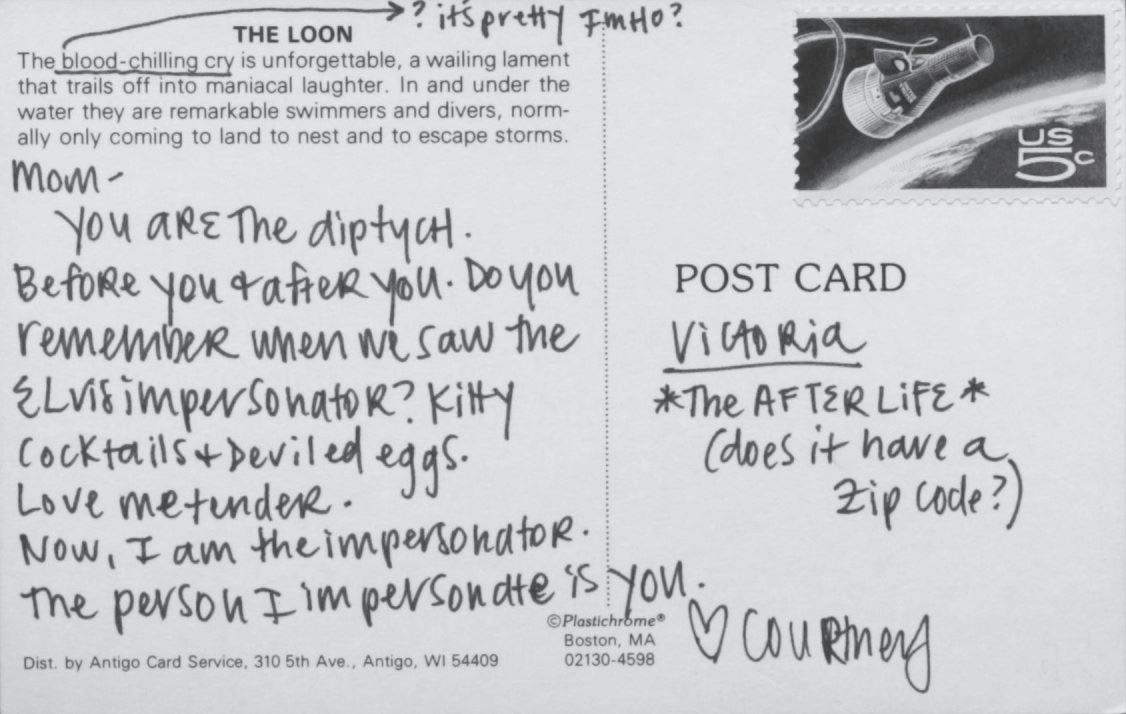 ? it's pretty IMHO?
THE LOON
The blood-chilling cry is unforgettable, a wailing lament
that trails off into maniacal laughter. In and under the
water they are remarkable swimmers and divers, norm-
ally only coming to land to nest and to escape storms.
Mom-
You ARE The diptycH.
Before you & after you. Do you
remember when we saw the
ELvis impersonator? Kitty
Cocktails + Deviled eggs.
Love me tender.
Now, I am the impersonator.
The person I impersonate is you.
♡ Courtney
US
5c
POST CARD
Victoria
*The AFTERLiFE*
(does it have a
Zip Code?)
©Plastichrome®
Boston, MA
02130-4598
Dist. by Antigo Card Service, 310 5th Ave., Antigo, WI 54409